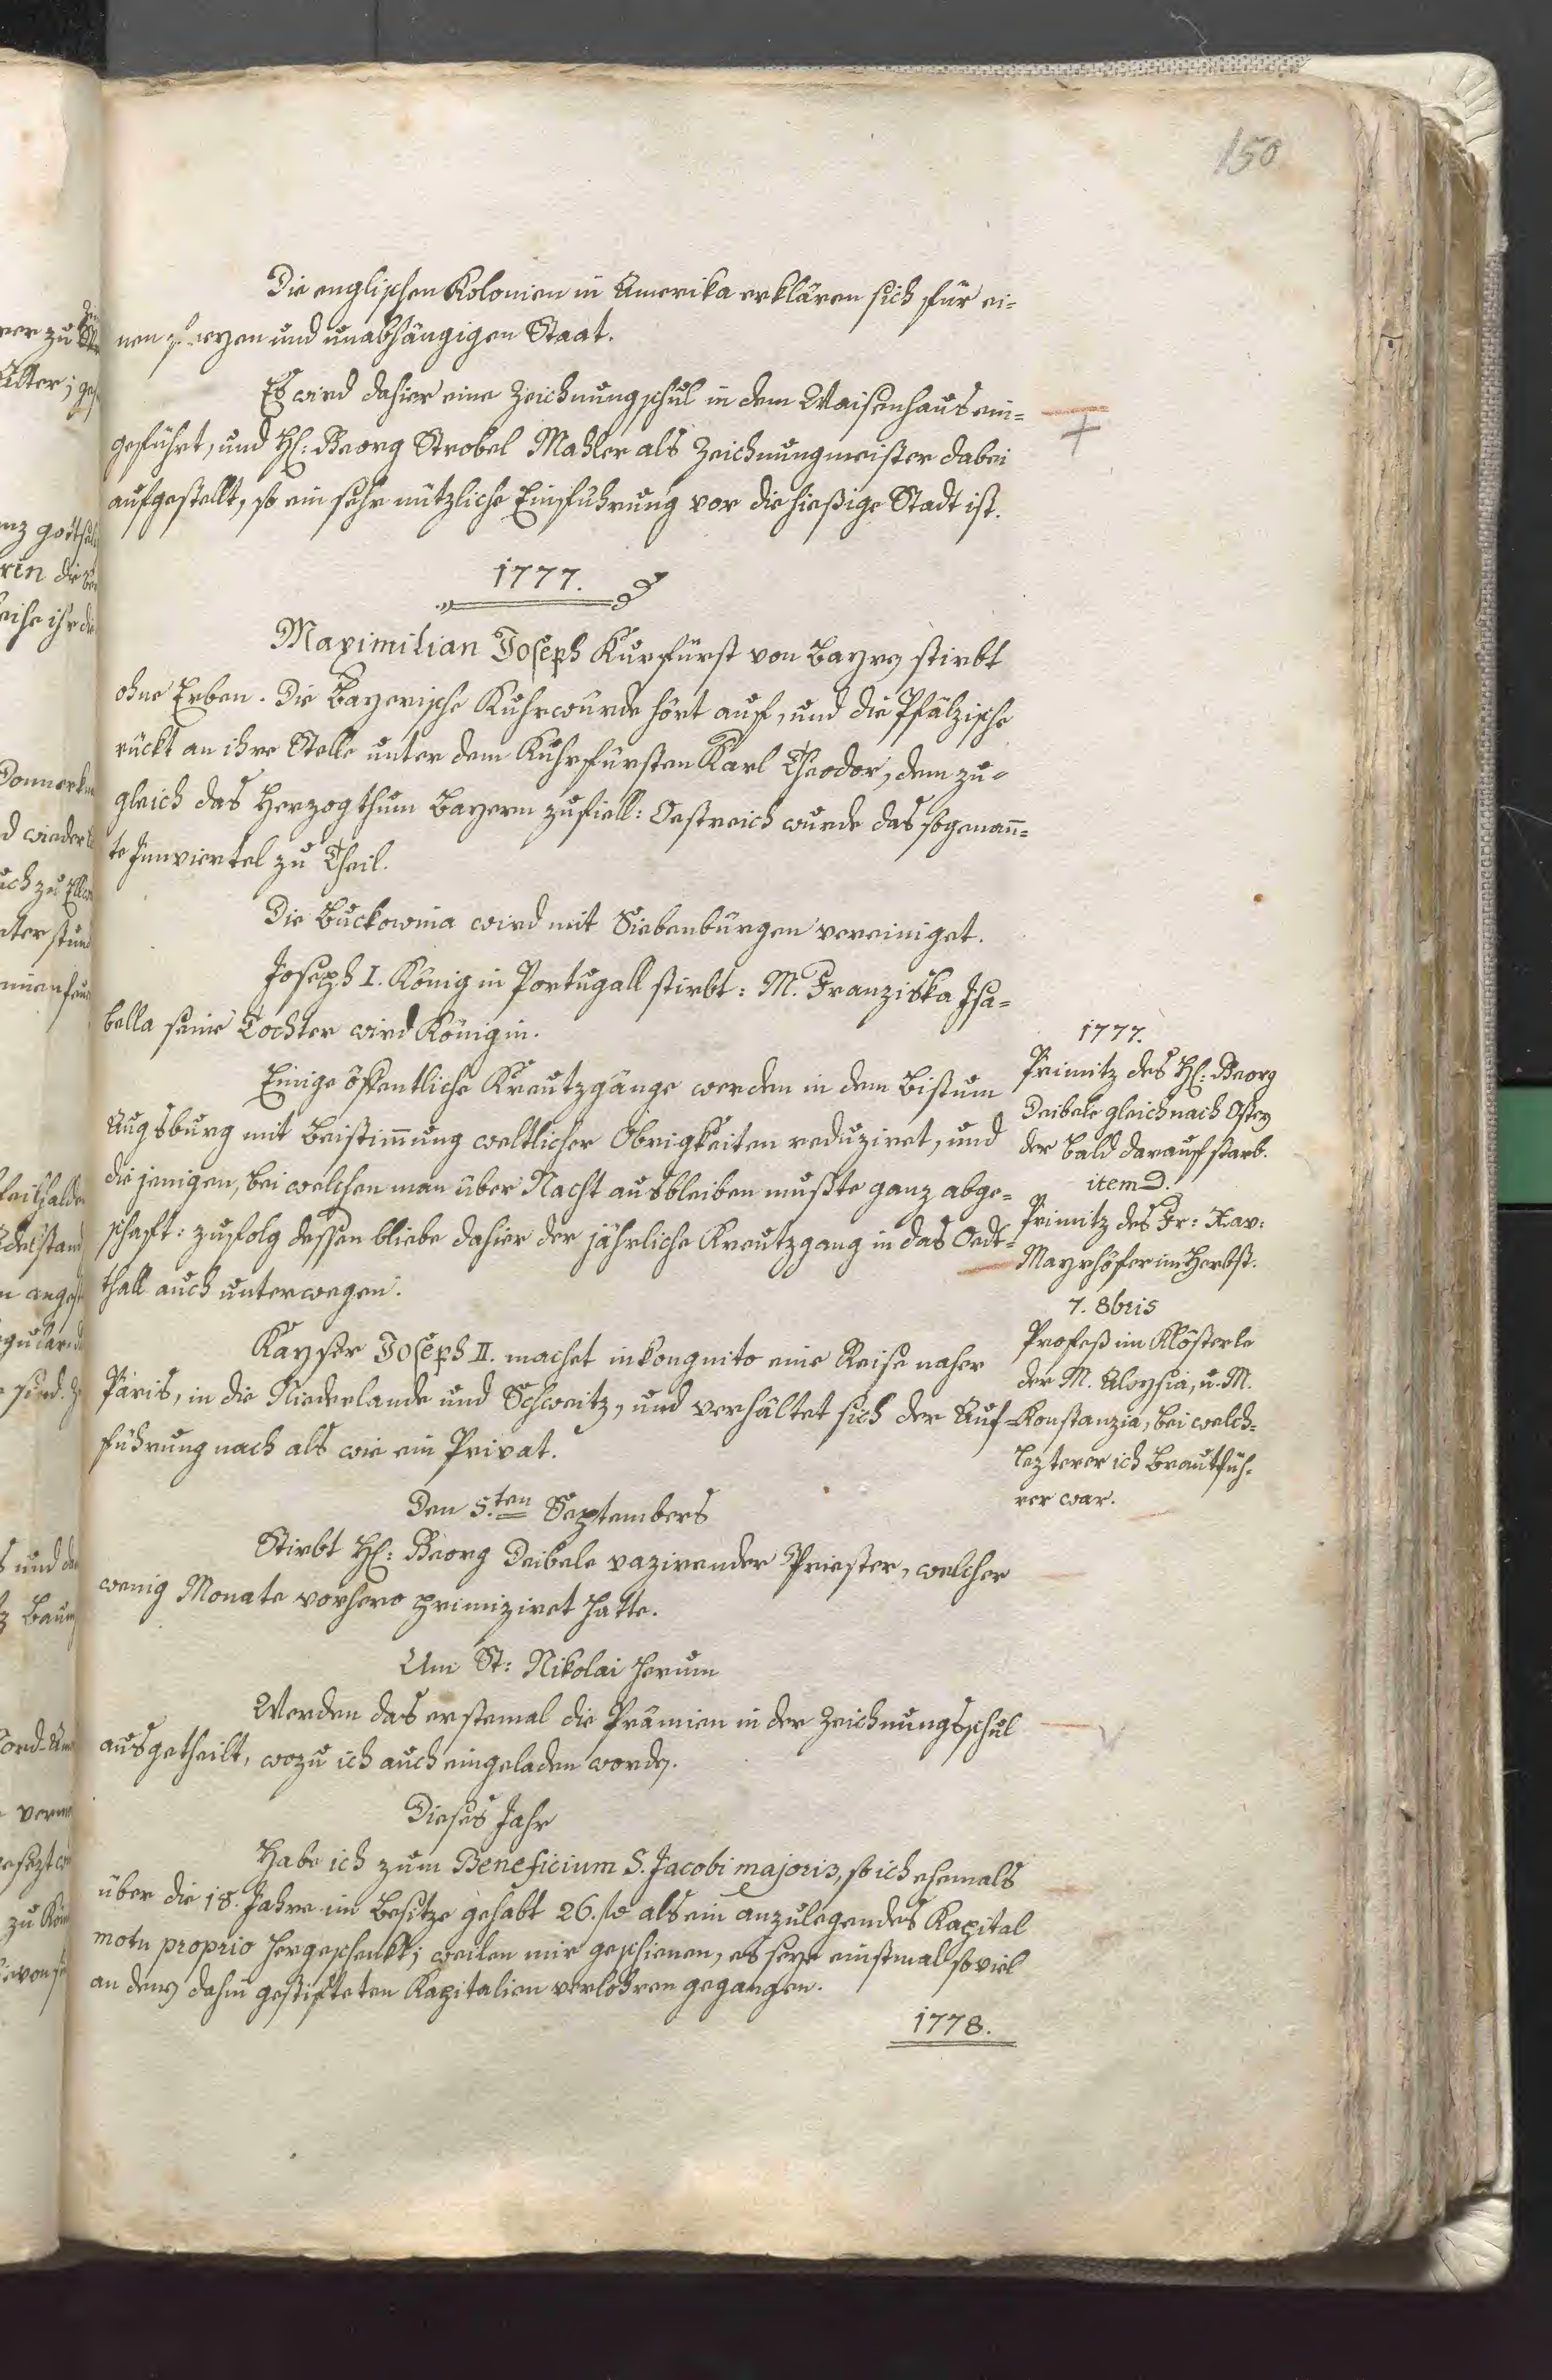 150
Die englischen Kolonien in Amerika erklären sich für ei-
nen freyen und unabhängigen Staat.
Es wird dahier eine Zeichnungschul in dem Waisenhaus ein-
geführt, und H: Georg Strobel Mahler als Zeichnungmeister dabei
aufgestellt, so ein sehr nützliche Einführung vor die hießige Stadt ist.
1777.
Maximilian Joseph Kurfürst von Bayern stirbt
ohne Erben. Die Bayerische Kuhrwürde hört auf, und die Pfälzische
rückt an ihre Stelle unter dem Kuhrfürsten Karl Theodor, dem zu-
gleich das Herzogthum Bayern zufiell: Oestreich wurde das sogenan̄-
te Innviertel zu Theil.
Die Buckowina wird mit Siebenbürgen vereiniget.
Joseph I. König in Portugall stirbt: M. Franziska Isa-
bella seine Tochter wird Königin.
Einige öffentliche Kreutzgänge werden in dem Bistum
Augsburg mit Beistim̄ung weltlicher Obrigkeiten reduziret, und
die jenigen, bei welchen man über Nacht ausbleiben mußte ganz abge-
schaft: zufolg dessen bliebe dahier der jährliche Kreutzgang in das Oedt-
thall auch unterwegen.
Kayser Joseph II. machet inkongnito eine Reise naher
Paris, in die Niederlande und Schweitz, und verhältet sich der Auf-
führung nach als wie ein Privat.
Den 5.ten Septembers
Stirbt H: Georg Deibele vazirender Priester, welcher
wenig Monate vorhero primiziret hatte.
Um St: Nikolai herum
Werden das erstemal die Prämien in der Zeichnungsschul
ausgetheilt, wozu ich auch eingeladen worden.
Dieses Jahr
Habe ich zum Beneficium S. Jacobi majoris, so ich ehemals
über die 18. Jahre im Besitze gehabt 26. fl. als ein anzulegendes Kapital
motu proprio hergeschenkt; weilen mir geschienen, es seye einstmal so viel
an denen dahin gestifteten Kapitalien verlohren gegangen.
1778.
1777.
Primitz des H: Georg
Deibele gleich nach Ostern
der bald darauf starb.
item d.
Primitz des Fr: Xav:
Mayrhöfer im Herbst.
7. 8bris
Profeß im Klösterle
der M. Aloysia, u. M.
Konstanzia, bei welch-
lezterer ich Brautfüh-
rer war.